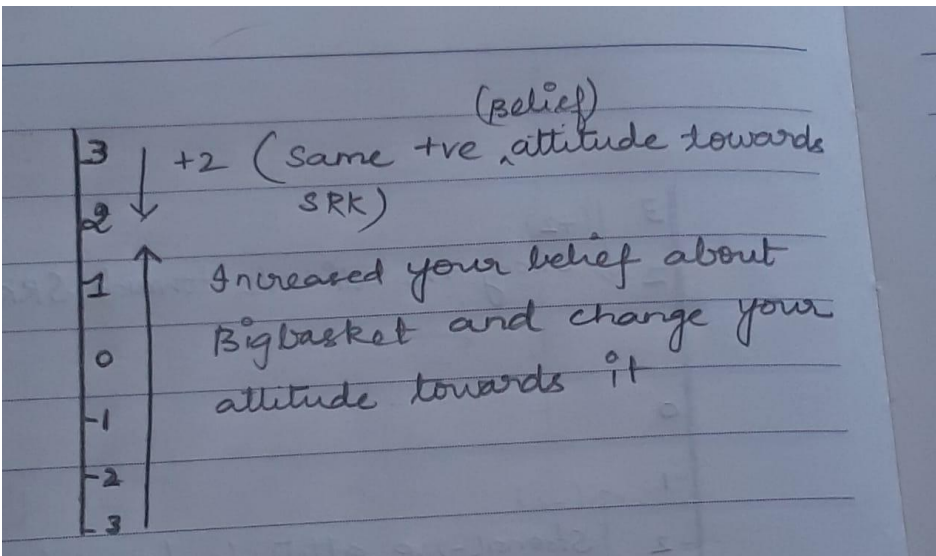 (Belief)
3 +2 (Same +ve ^ attitude towards
2 SRK)
Increased your belief about
1
Bigbasket and change your
0
attitude towards it
-1
-2
-3